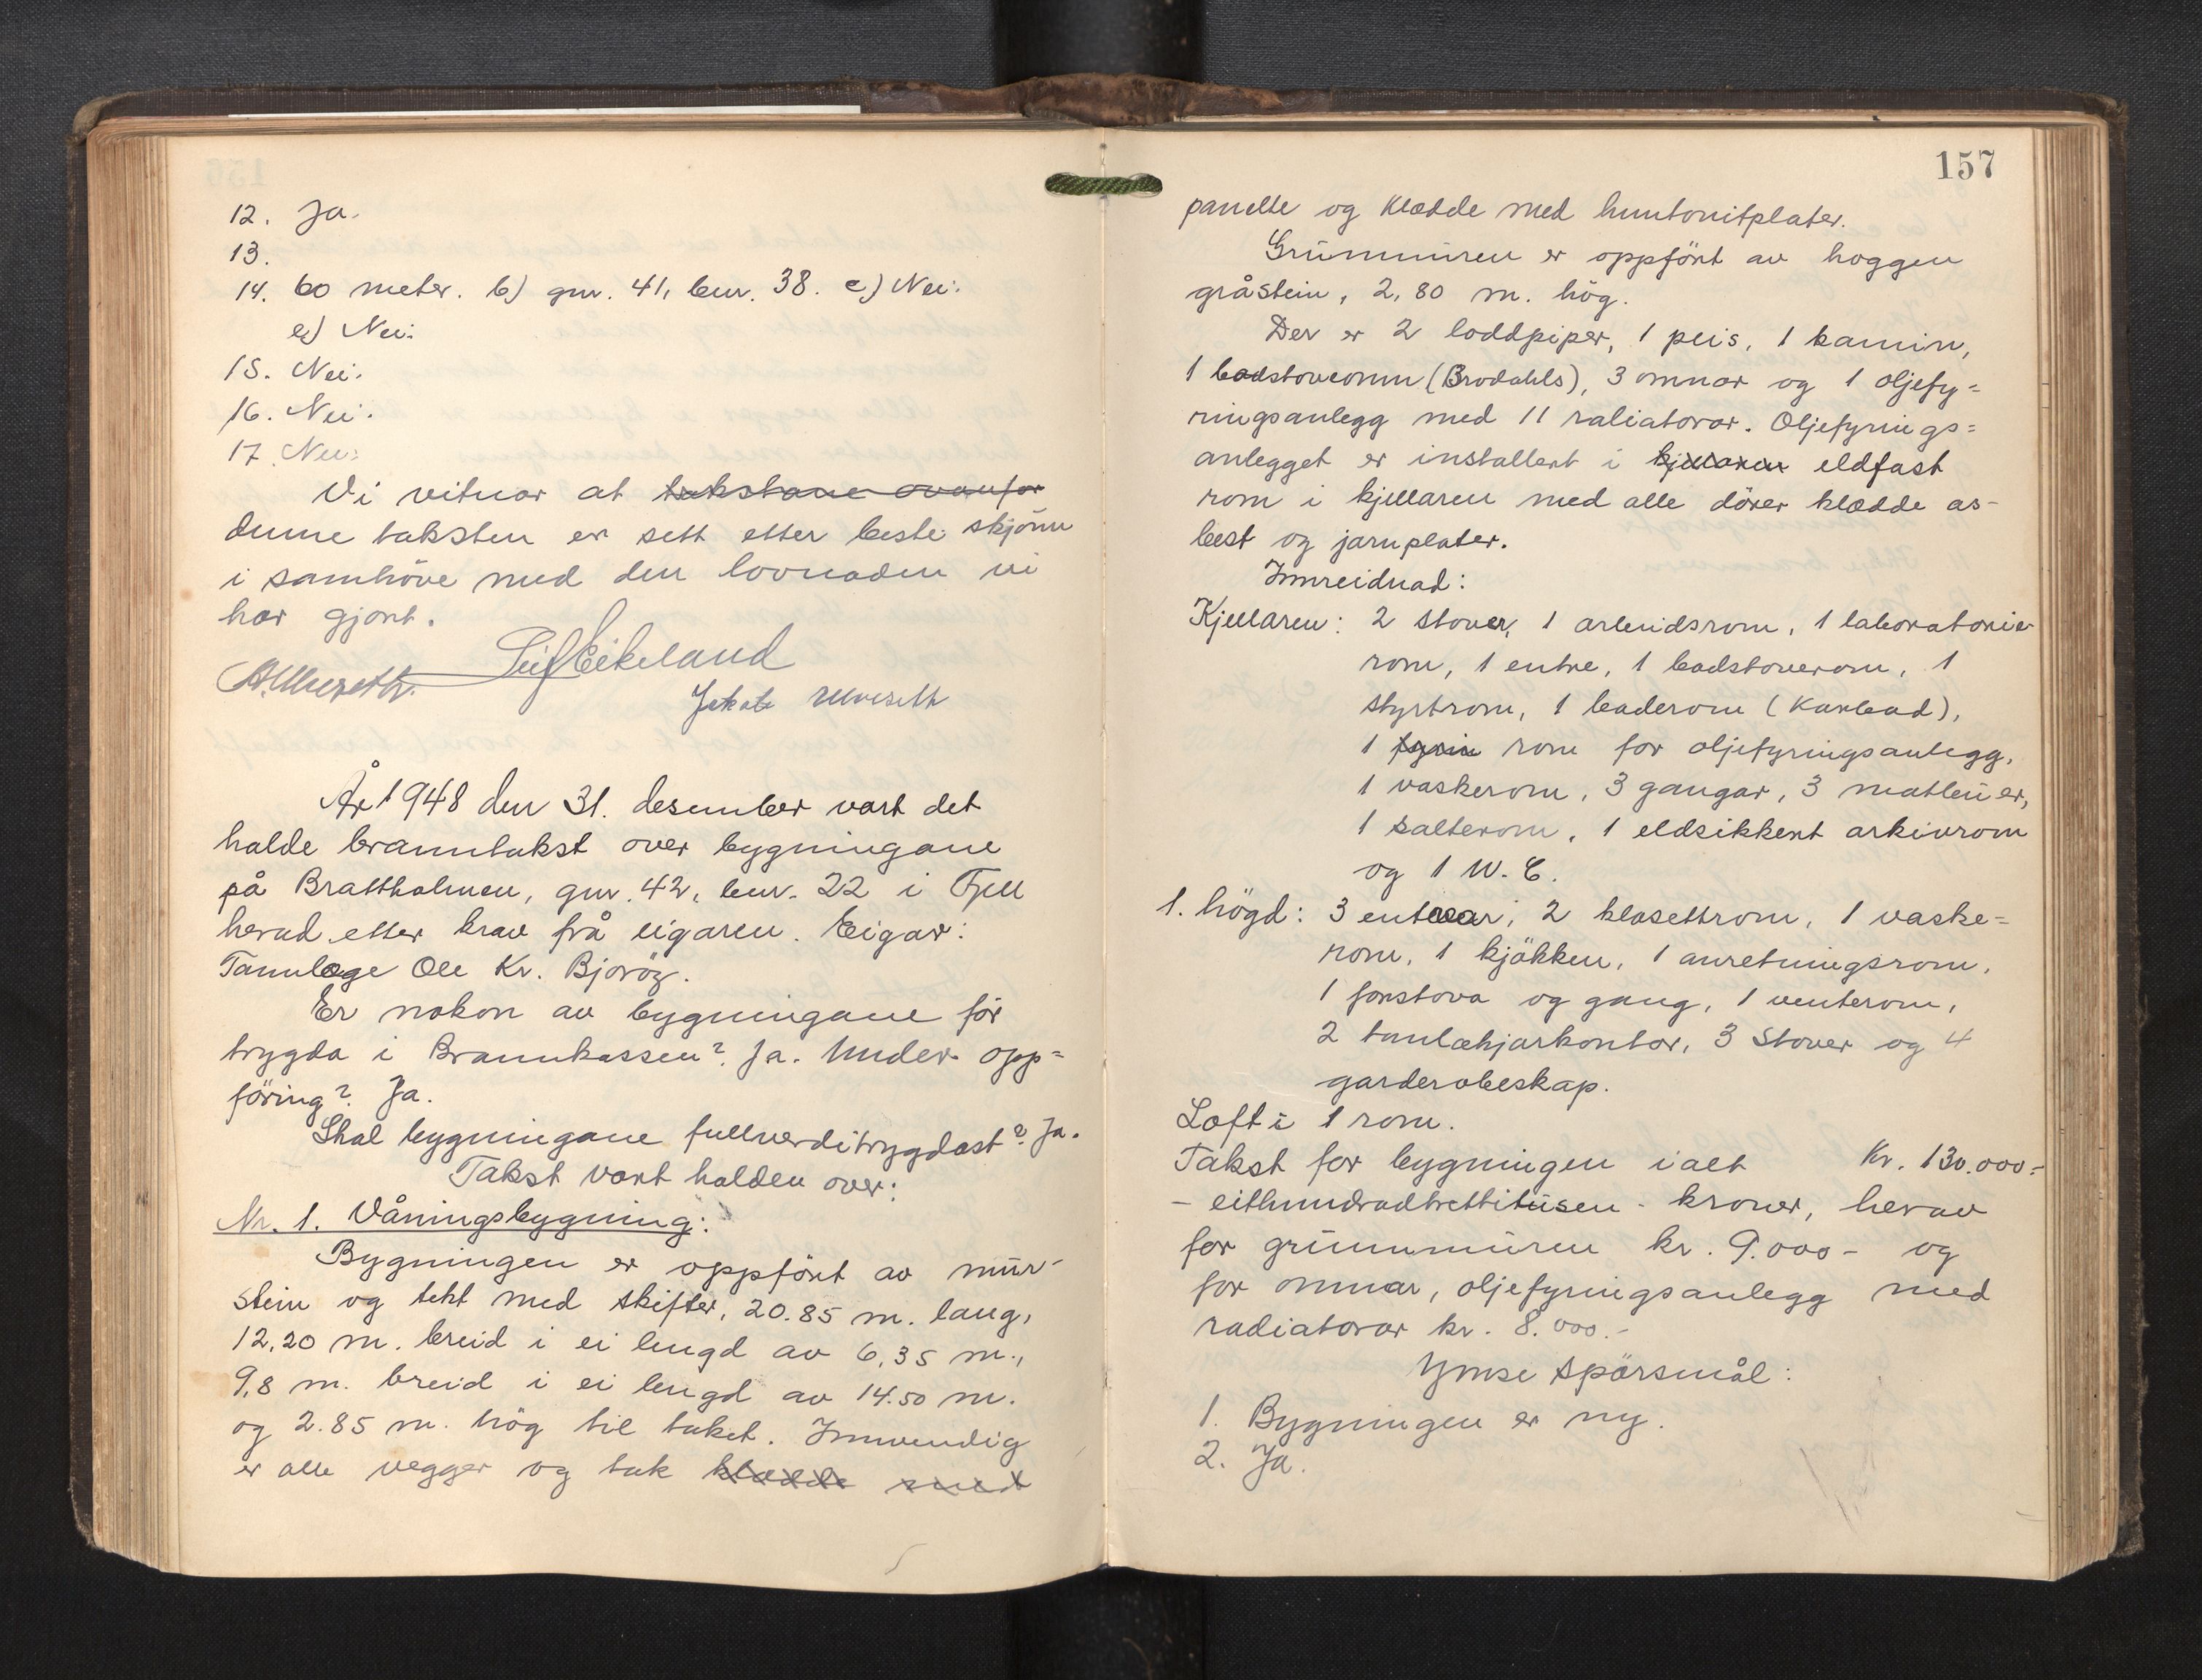 12. Ja.
13.
14. 60 meter. b) gnr. 41, bnr. 38. c) Nei.
e) Nei.
15. Nei.
16. Nei.
17. Nei.
Vi vitnar at takstane ovanfor
denne taksten er sett etter beste skjönn
i samhöve med den lovnaden vi
har gjort.
Leif Eikeland
Jakob
År 1948 den 31. desember vart det
halde branntakst over bygningane
på Brattholmen, gnr. 42, bnr. 22 i Fjell
herad etter krav frå eigaren. Eigar:
Tannlæge Ole Kr. Bjoröy.
Er nokon av bygningane för
trygda i Brannkassen? Ja. Under opp=
föring? Ja.
Skal bygningane fullverditrygdast? Ja.
Takst vart halden over:
Nr. 1. Våningsbygning:
Bygningen er oppfört av mur-
stein og tekt med skifter, 20.85 m. lang,
12,20 m. breid i ei lengd av 6,35 m.,
9,8 m. breid i ei lengd av 14.50 m.
og 2.85 m. hög til taket. Innvendig
er alle vegger og tak klædde med
157
panelte og klædde med huntonitplater.
Grunnmuren er oppfört av hoggen
gråstein, 2,80 m. hög.
Der er 2 loddpiper, 1 peis, 1 kamin,
1 badstoveomn (Brodahls), 3 omnar og 1 oljefy=
ringsanlegg med 11 raliatorar. Oljefyrings=
anlegget er installert i kjellaren eldfast
rom i kjellaren med alle dörer klædde as-
best og jarnplater.
Innreidnad:
Kjellaren: 2 stover, 1 arbeidsrom, 1 laboratorie
rom, 1 entre, 1 badstoverom, 1
styrtrom, 1 baderom (Karbad),
1 fyrin rom for oljefyringsanlegg,
1 vaskerom, 3 gangar, 3 matbuer,
1 salterom, 1 eldsikkert arkivrom
og 1 W.C.
1. högd: 3 entrear, 2 klosettrom, 1 vaske=
rom, 1 kjökken, 1 anretningsrom,
1 forstova og gang, 1 venterom,
2 tanlækjarkontor, 3 Stover og 4
garderobeskap.
Loft i 1 rom.
Takst for bygningen ialt Kr. 130.000.-
- eithundradtrettitusen - kroner, herav
for grunnmuren kr. 9.000- og
for omnar, oljefyringsanlegg med
radiatorar kr. 8.000.-
Ymse spörsmål:
1. Bygningen er ny.
2. Ja.